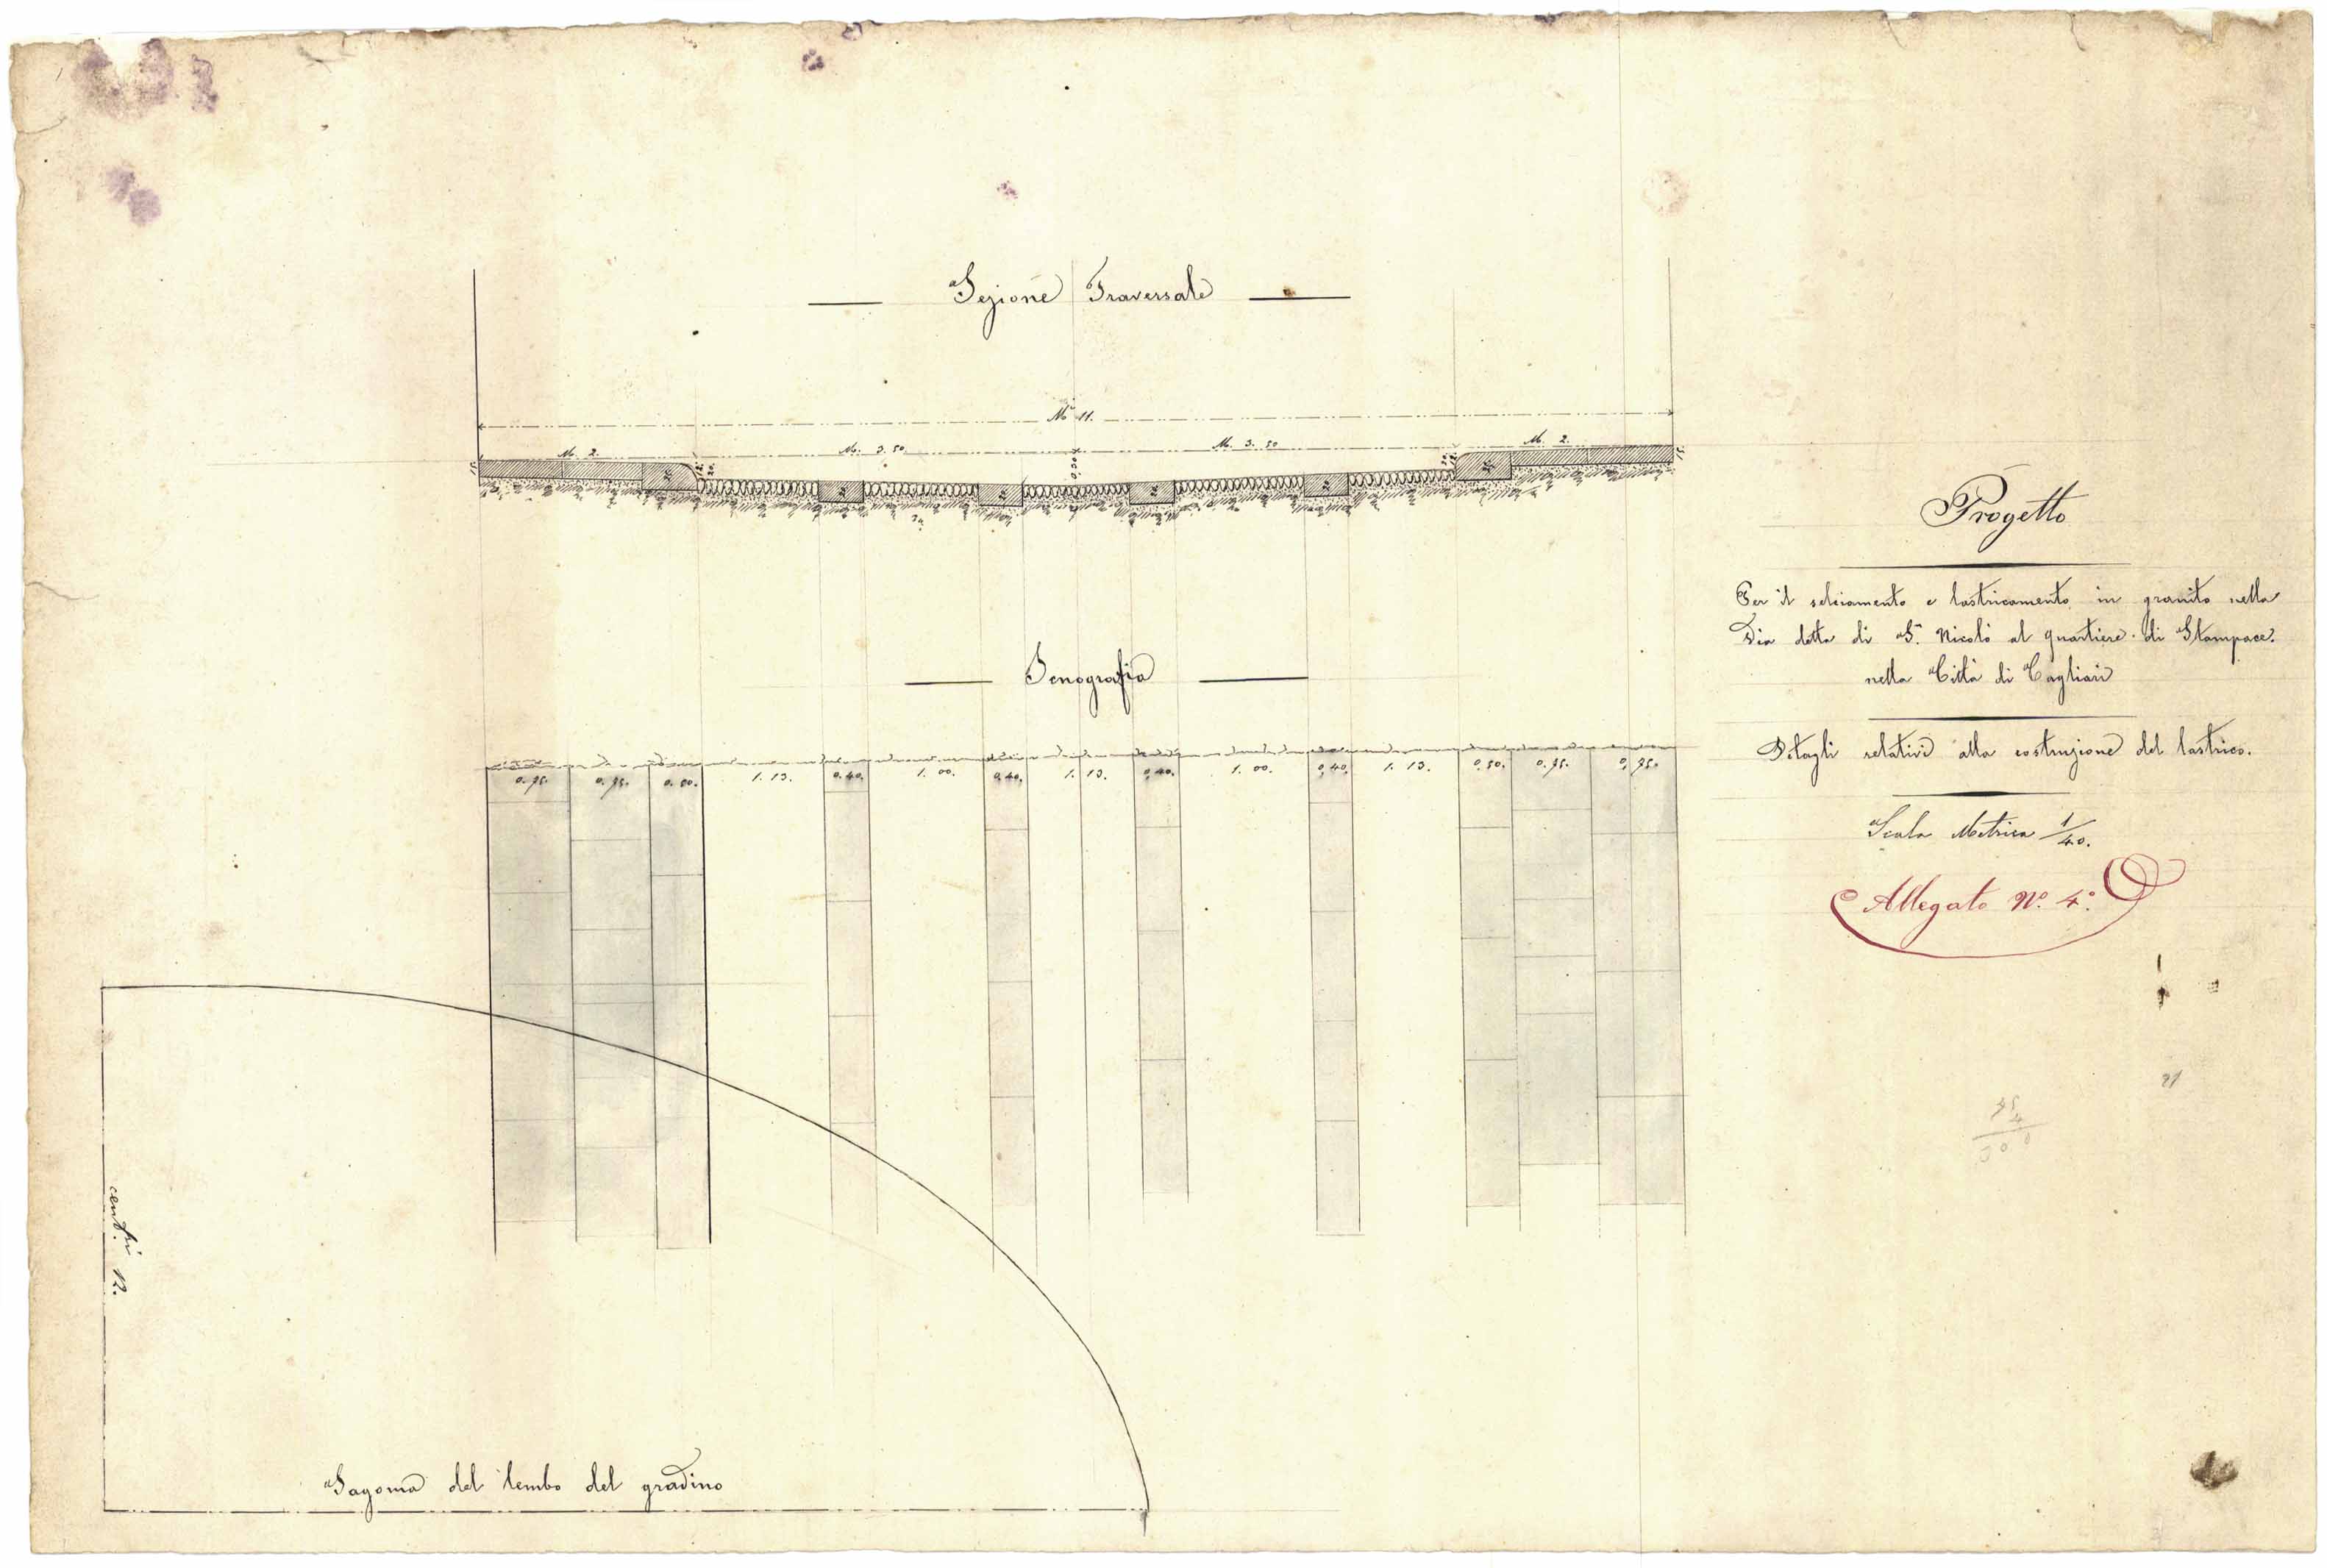 Sezione Traversale
M.i 11.
M. 2.
M. 3. 50
M. 3. 50
M. 2.
0.30
Icnografia
0. 75.
0. 75.
0. 50.
1. 13.
0. 40.
1. 00.
0. 40.
1. 13.
0. 40.
1. 00.
0. 40.
1. 13.
0. 50.
0. 75.
0. 75.
Progetto
Per il selciamento e lastricamento in granito nella
Via detta di S.n Nicolò al quartiere di Stampace.
nella Città di Cagliari
Detagli relativi alla costruzione del lastrico.
Scala Metrica 1/40.
Allegato N.° 4.°
Sagoma del lembo del gradino